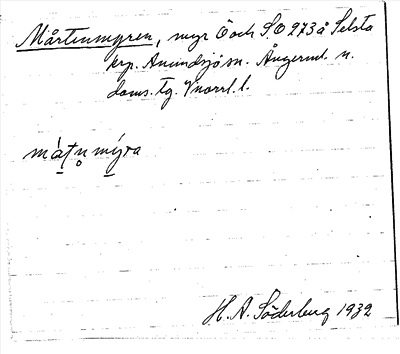 Mårtenmyren, myr Ö och S. Ö 273 å Selsta
krp. Anundsjö sn. Ångerml. n.
doms. Tg. Vnorrl. l.
mát̩n̥ mýra
H. A. Söderberg 1932